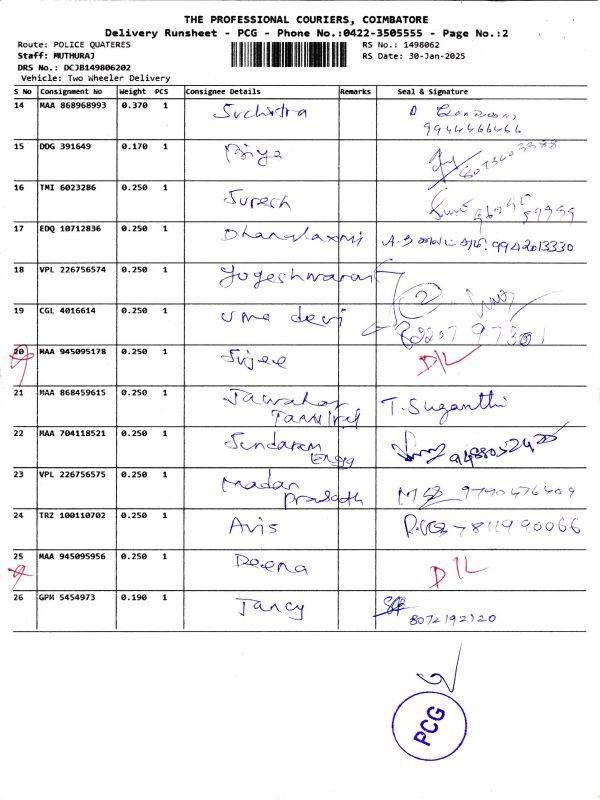 THE PROFESSIONAL COURIERS, COIMBATORE
Delivery Runsheet - PCG - Phone No.:0422-3505555 - Page No.:2
Route: POLICE QUATERES
Staff: MUTHURAJ
DRS No.: DCJB149806202
Vehicle: Two Wheeler Delivery
RS No.: 1498062
RS Date: 30-Jan-2025
S No Consignment No Weight PCS Consignee Details Remarks Seal & Signature
14 MAA 868968993 0.370 1 Suchitra
9944466466
15 DDG 391649 0.170 1 Priya
16 TMI 6023286 0.250 1 Suresh
17 EDQ 10712836 0.250 1 Dhanalaxmi 9942013330
18 VPL 226756574 0.250 1 Yogeshwaran 2
19 CGL 4016614 0.250 1 Uma devi
20 MAA 945095178 0.250 1 Sujee D/L
21 MAA 868459615 0.250 1 Jawahar
Tamilraj T. Suganthi
22 MAA 704118521 0.250 1 Sundaram
Engg
23 VPL 226756575 0.250 1 Madan
prasath 9790476409
24 TRZ 100110702 0.250 1 Avis 7811990066
25 MAA 945095956 0.250 1 Deena D/L
26 GPM 5454973 0.190 1 Jancy
8072192120
PCG